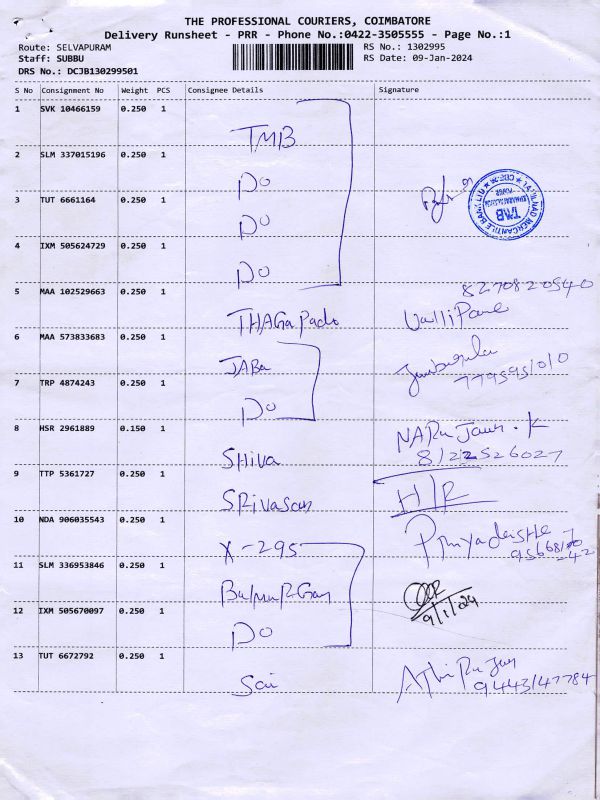 THE PROFESSIONAL COURIERS, COIMBATORE
Delivery Runsheet - PRR - Phone No.:0422-3505555 - Page No.:1
Route: SELVAPURAM RS No.: 1302995
Staff: SUBBU RS Date: 09-Jan-2024
DRS No.: DCJB130299501
S No Consignment No Weight PCS Consignee Details Signature
1 SVK 10466159 0.250 1
TMB
2 SLM 337015196 0.250 1
Do
3 TUT 6661164 0.250 1
Do
4 IXM 505624729 0.250 1
Do
TAMILNAD MERCANTILE BANK LTD
TMB
5 MAA 102529663 0.250 1
8270820540
6 MAA 573833683 0.250 1
JABa
7 TRP 4874243 0.250 1
Do
8 HSR 2961889 0.150 1
SHIVA
8122526027
9 TTP 5361727 0.250 1
SRIVASAN
H/R
10 NDA 906035543 0.250 1
X-295
11 SLM 336953846 0.250 1
12 IXM 505670097 0.250 1
Do
9/1/24
13 TUT 6672792 0.250 1
Sai
9443147784